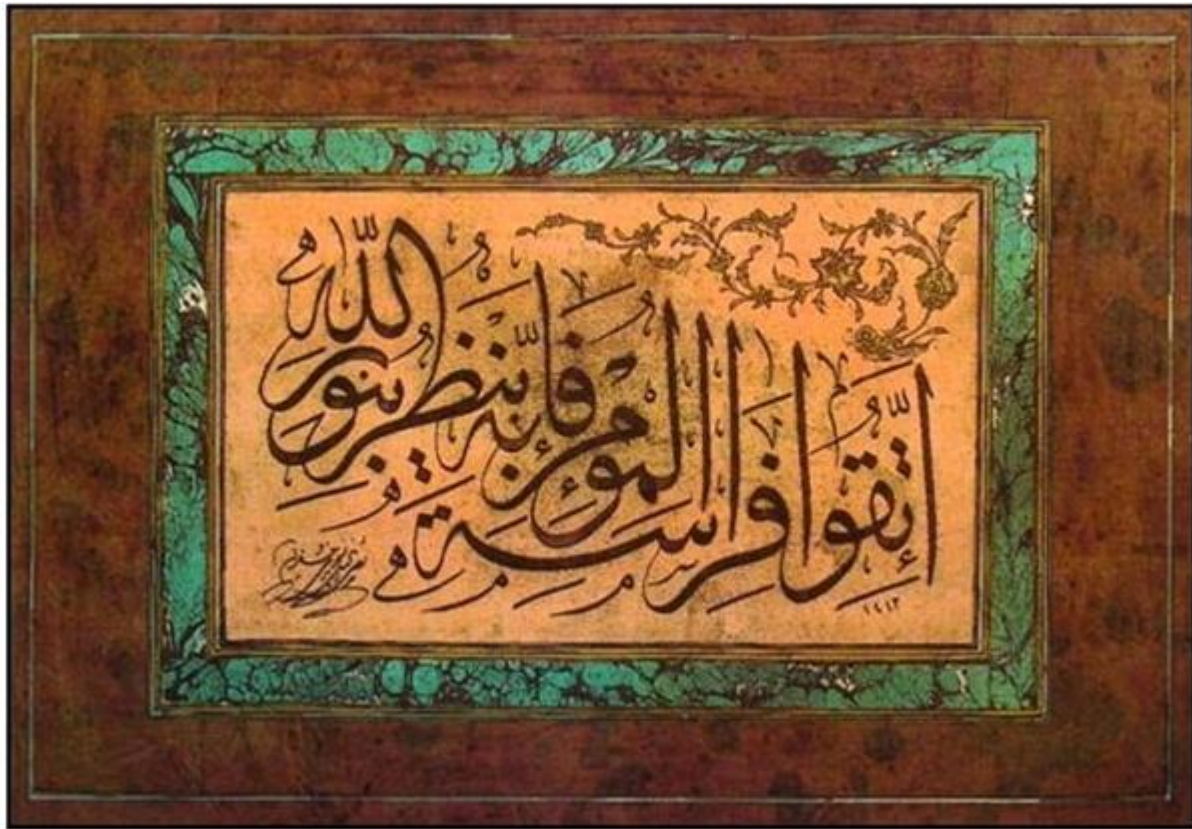 إتقوا فراسة المؤمن فإنه ينظر بنور الله
١٤١٣